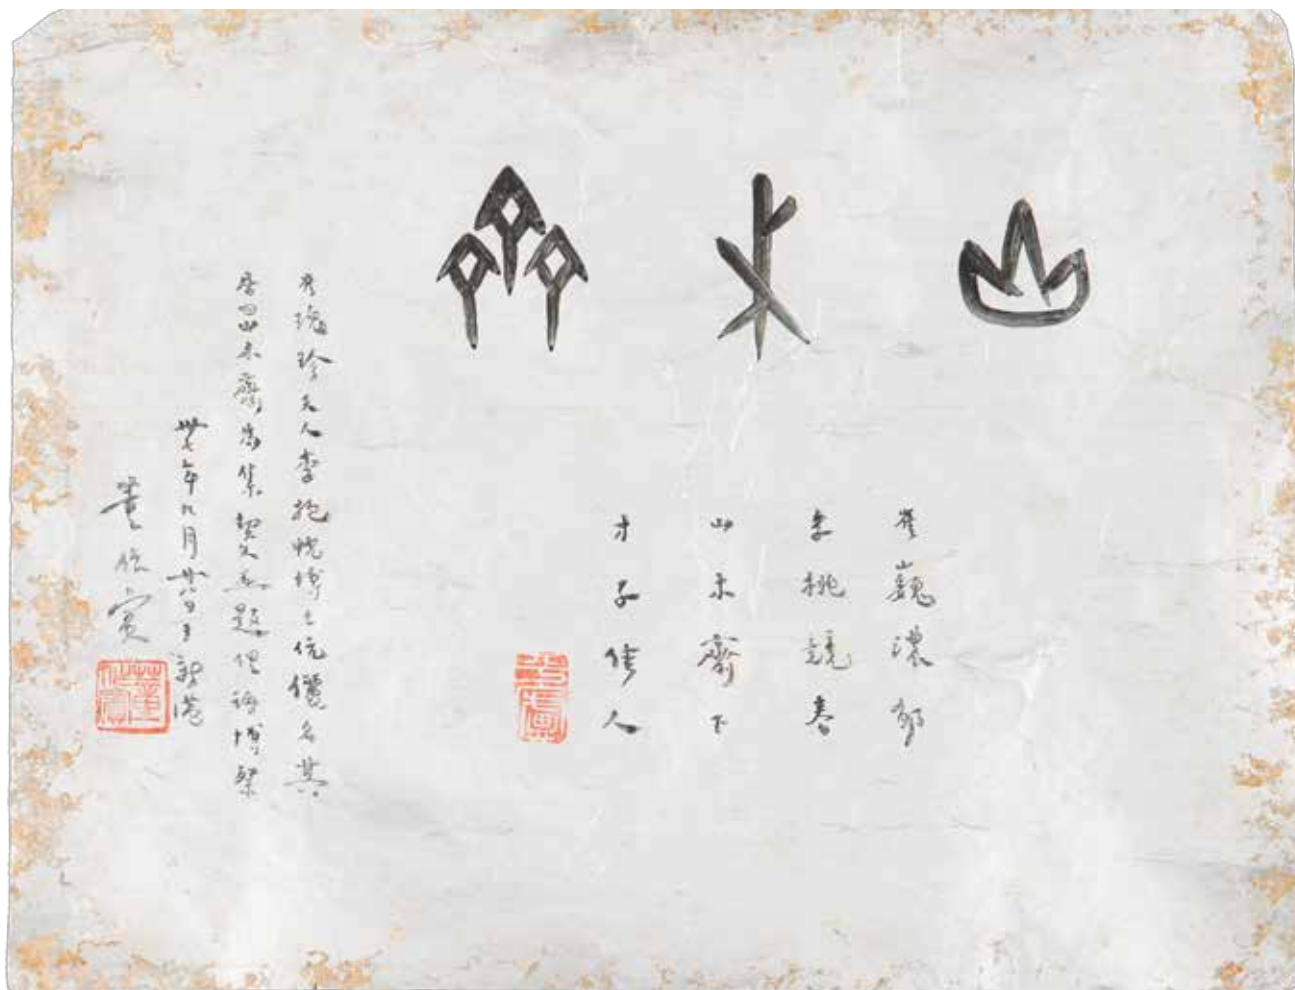 山木齋
崔巍濃郁
李桃競春
山木齋下
才子佳人
平廬
崔瑰珍夫人李抱忱博士伉儷名其
居曰山木齋為集契文並題俚語博粲
卅七年九月廿八日于新港
董作賓
董作賓